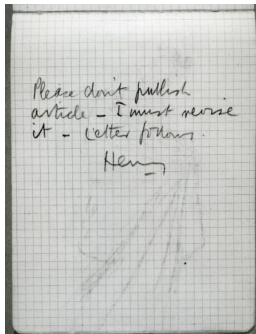 Please don't publish
article - I must revise
it - Letter follows.
Henry